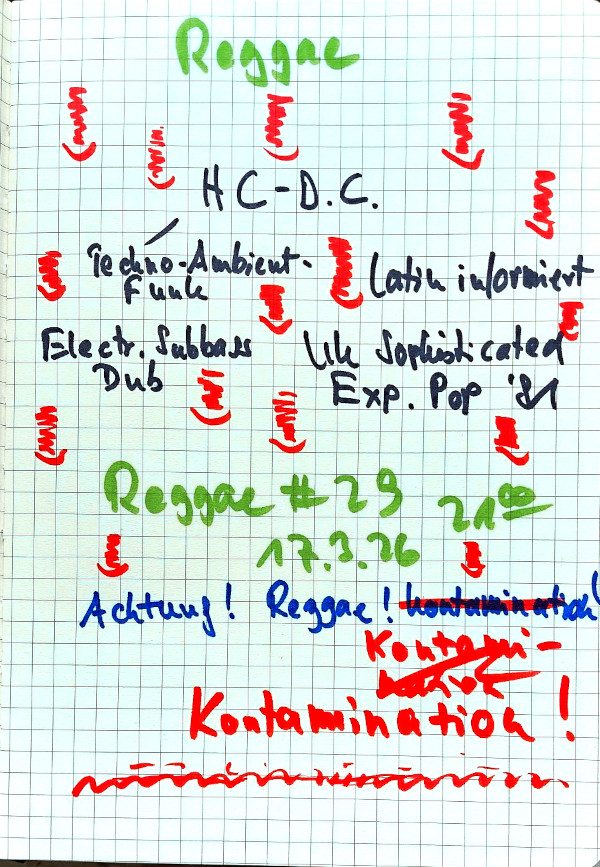 Reggae
HC-D.C.
Techno-Ambient-
Funk
Latin informiert
Electr. Subbass
Dub
UK Sophisticated
Exp. Pop '81
Reggae # 29 21⁰⁰
17.3.26
Achtung! Reggae! Kontamination!
Kontami-
nation
Kontamination!